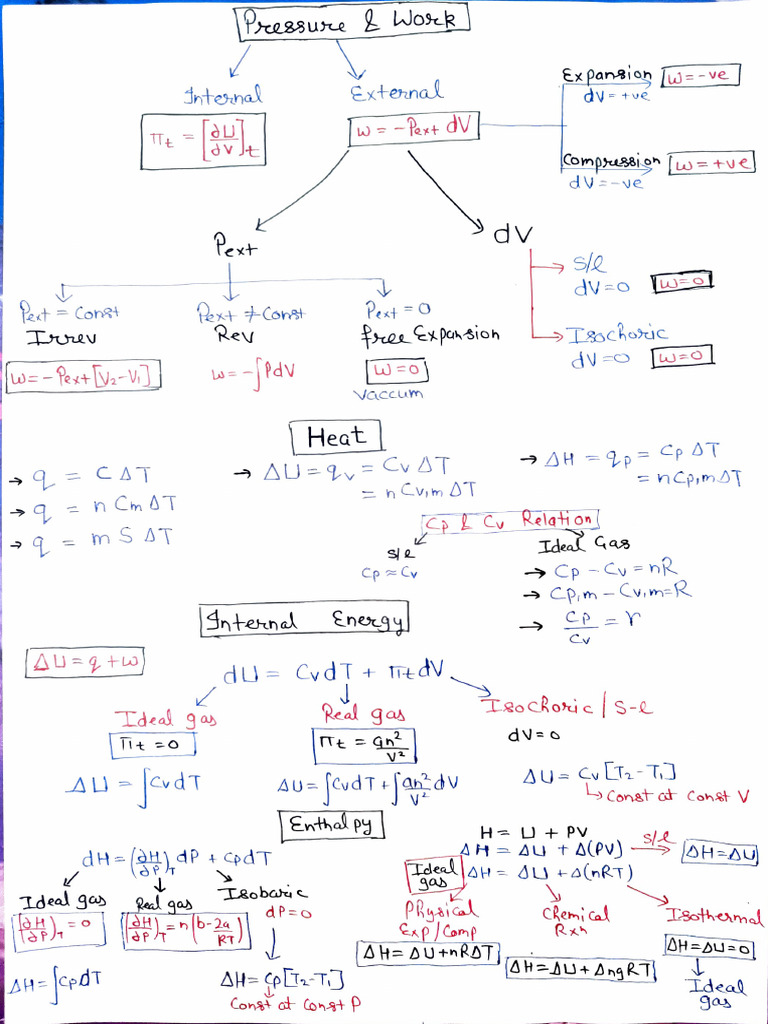 Pressure & Work
Internal
External
Πt = [∂U/∂V]t
w = -Pext dV
Expansion w = -ve
dV = +ve
Compression w = +ve
dV = -ve
Pext
dV
s/l
dV = 0 w = 0
Isochoric
dV = 0 w = 0
Pext = Const
Irrev
w = -Pext [V2-V1]
Pext ≠ Const
Rev
w = -∫PdV
Pext = 0
free Expansion
w = 0
Vaccum
Heat
→ q = C ΔT
→ q = n Cm ΔT
→ q = m S ΔT
→ ΔU = qv = Cv ΔT
= n Cv,m ΔT
→ ΔH = qp = Cp ΔT
= n Cp,m ΔT
Cp & Cv Relation
s/l
Cp ≈ Cv
Ideal Gas
→ Cp - Cv = nR
→ Cp,m - Cv,m = R
→ Cp/Cv = r
Internal Energy
ΔU = q + w
dU = CvdT + Πt dV
Ideal gas
Πt = 0
ΔU = ∫CvdT
Real gas
Πt = an²/V²
ΔU = ∫CvdT + ∫an²/V² dV
Isochoric / S-l
dV = 0
ΔU = Cv [T2-T1]
Const at Const V
Enthalpy
dH = (∂H/∂P)T dP + CpdT
Ideal gas
(∂H/∂P)T = 0
ΔH = ∫CpdT
Real gas
(∂H/∂P)T = n(b-2a/RT)
Isobaric
dP = 0
ΔH = Cp [T2-T1]
Const at Const P
H = U + PV
ΔH = ΔU + Δ(PV) s/l ΔH = ΔU
Ideal gas
ΔH = ΔU + Δ(nRT)
Physical
Exp/Comp
ΔH = ΔU + nRΔT
Chemical
Rxn
ΔH = ΔU + ΔngRT
Isothermal
ΔH = ΔU = 0
Ideal
gas